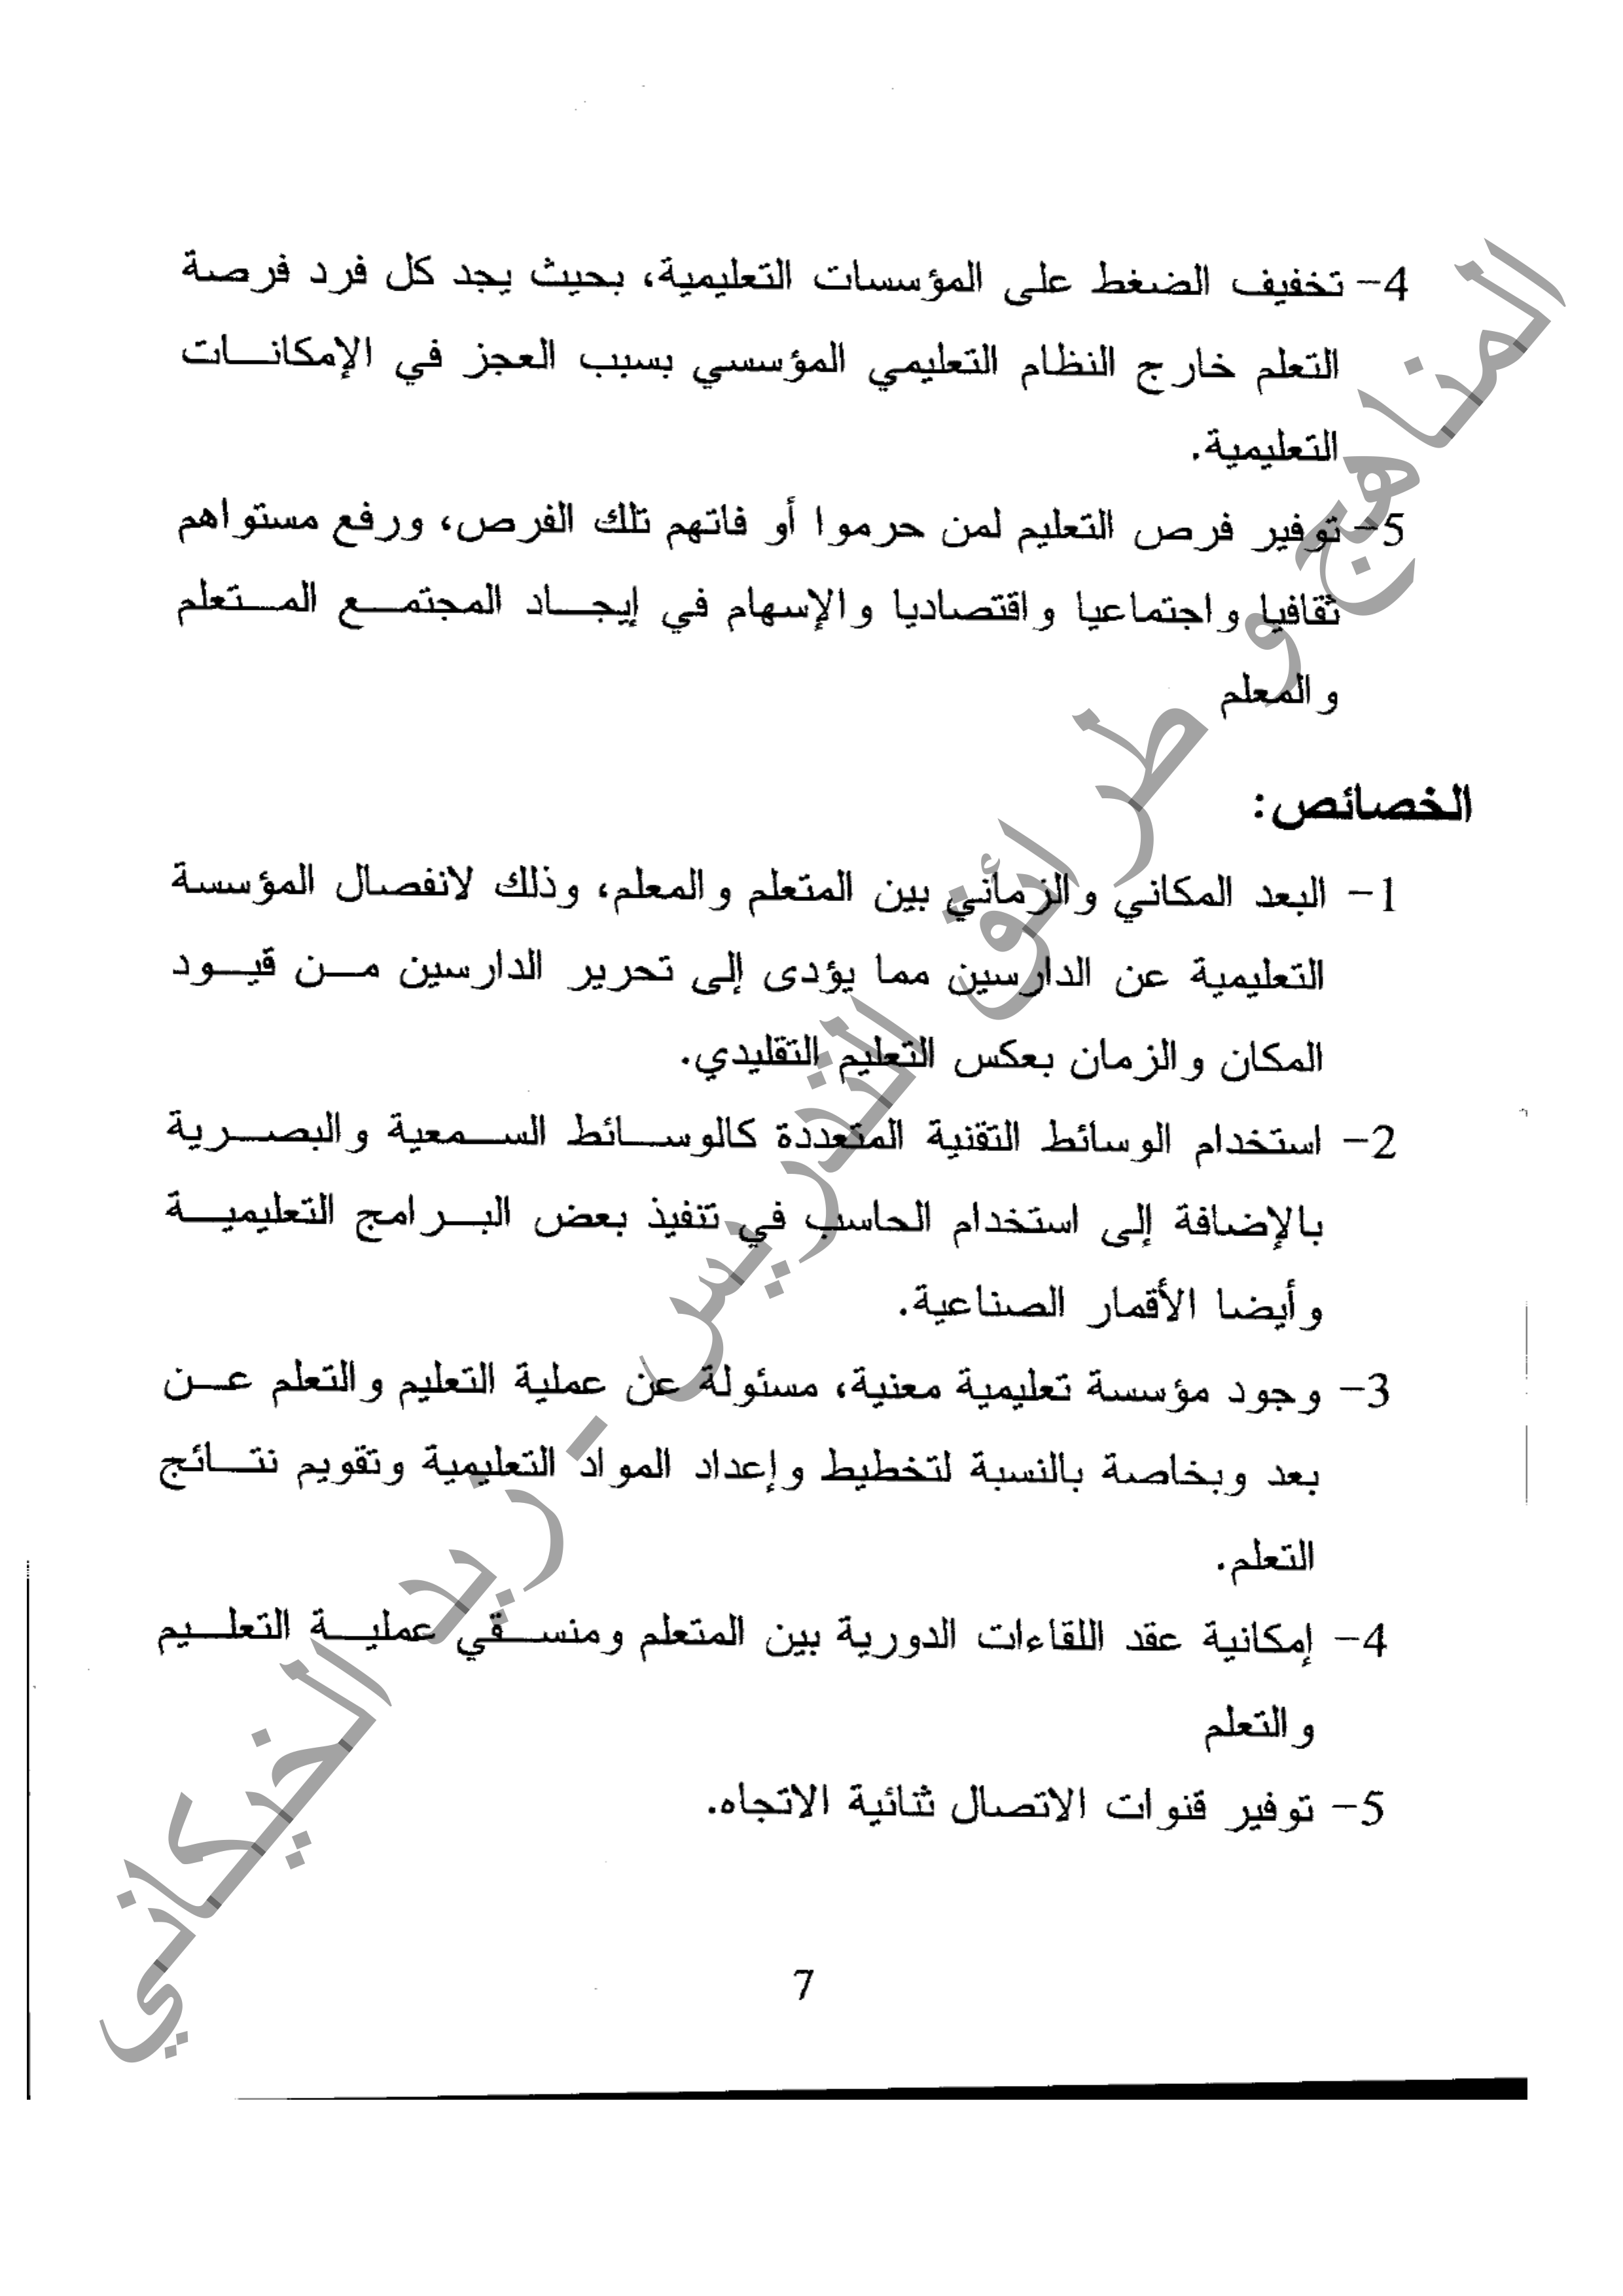 4- تخفيف الضغط على المؤسسات التعليمية، بحيث يجد كل فرد فرصة
التعلم خارج النظام التعليمي المؤسسي بسبب العجز في الإمكانات
التعليمية.
5- توفير فرص التعليم لمن حرموا أو فاتهم تلك الفرص، ورفع مستواهم
ثقافيا واجتماعيا واقتصاديا والإسهام في إيجاد المجتمع المتعلم
والمعلم
الخصائص:
1- البعد المكاني والزماني بين المتعلم والمعلم، وذلك لانفصال المؤسسة
التعليمية عن الدارسين مما يؤدى إلى تحرير الدارسين من قيود
المكان والزمان بعكس التعليم التقليدي.
2- استخدام الوسائط التقنية المتعددة كالوسائط السمعية والبصرية
بالإضافة إلى استخدام الحاسب في تنفيذ بعض البرامج التعليمية
وأيضا الأقمار الصناعية.
3- وجود مؤسسة تعليمية معنية، مسئولة عن عملية التعليم والتعلم عن
بعد وبخاصة بالنسبة لتخطيط وإعداد المواد التعليمية وتقويم نتائج
التعلم.
4- إمكانية عقد اللقاءات الدورية بين المتعلم ومنسقي عملية التعليم
والتعلم
5- توفير قنوات الاتصال ثنائية الاتجاه.
7
المناهج و طرائق التدريس - زيد الخيكاني